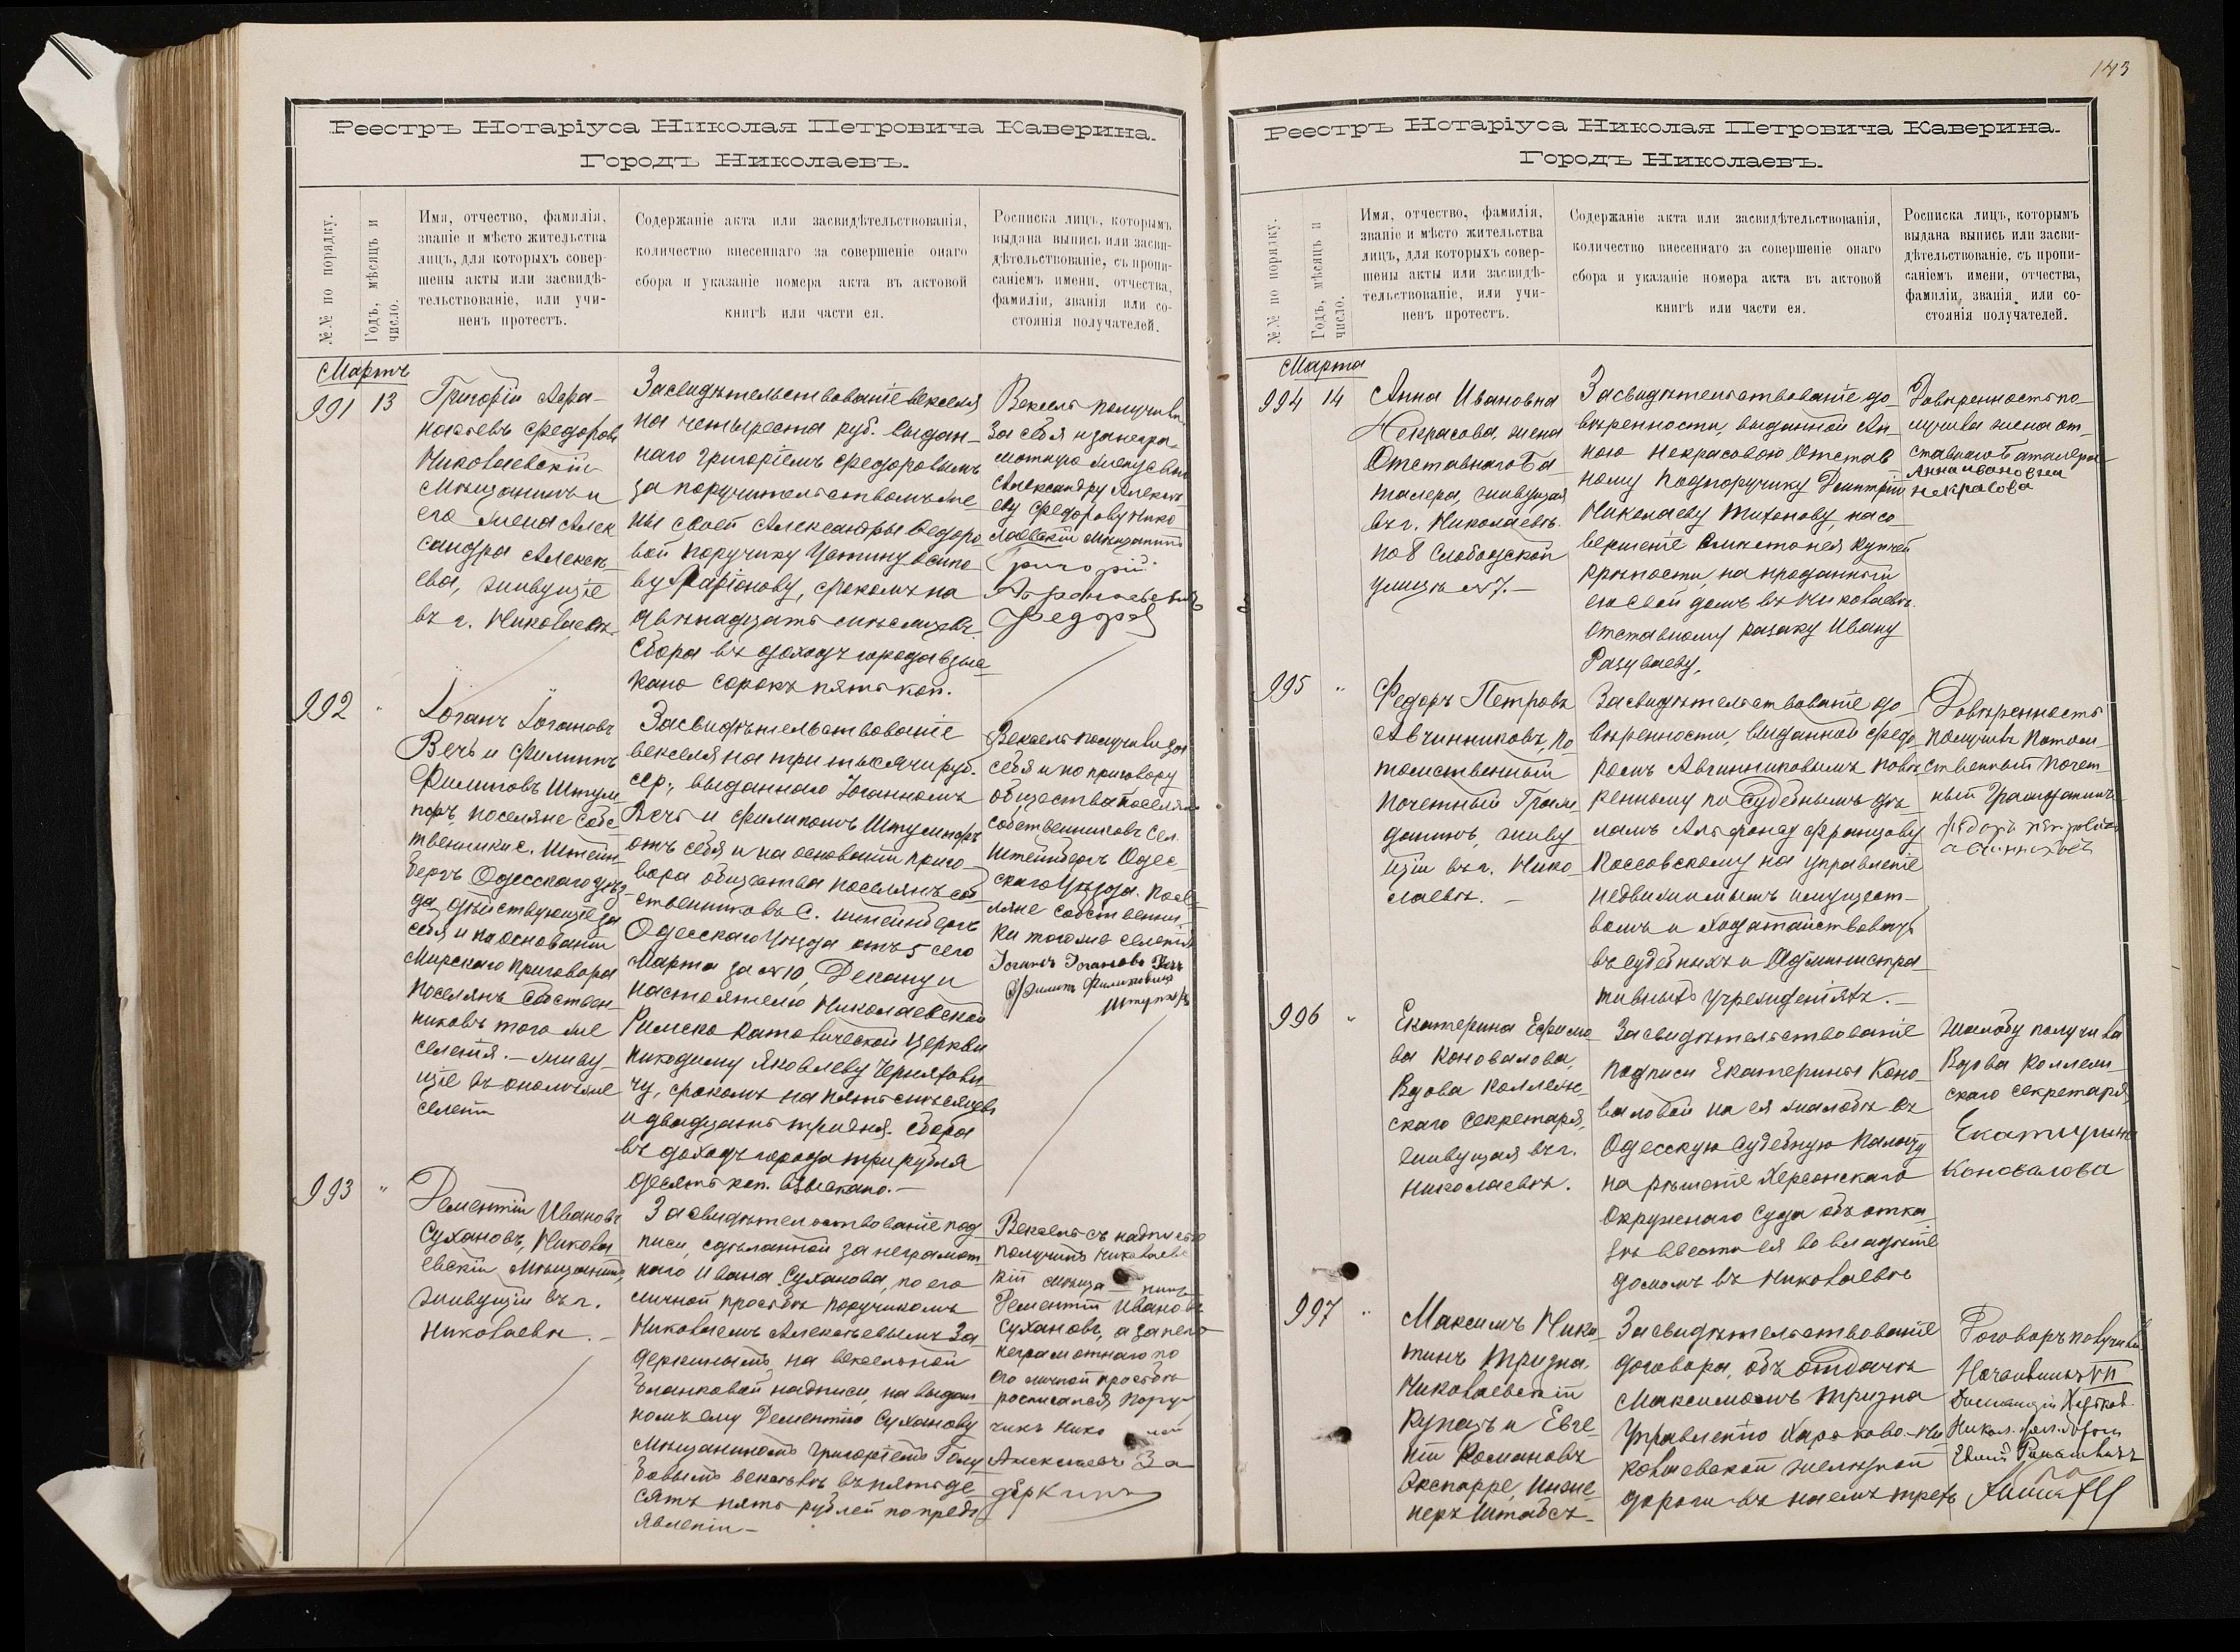 143
Реестръ Нотаріуса Николая Петровича Каверина.
Городъ Николаевъ.
№№ по порядку.
Годъ, мѣсяцъ и
число.
Имя, отчество, фамилія,
званіе и мѣсто жительства
лицъ, для которыхъ совер-
шены акты или засвидѣ-
тельствованіе, или учи-
ненъ протестъ.
Содержаніе акта или засвидѣтельствованія,
количество внесеннаго за совершеніе онаго
сбора и указаніе номера акта въ актовой
книгѣ или части ея.
Росписка лицъ, которымъ
выдана выпись или засви-
дѣтельствованіе, съ пропи-
саніемъ имени, отчества,
фамиліи, званія или со-
стоянія получателей.
Мартъ
991
13
Григорій Афа-
насьевъ Федоровъ
Николаевскій
Мѣщанинъ и
его жена Алек
сандра Алексѣ-
ева, живущіе
въ г. Николаевѣ.
Засвидѣтельствованіе векселя
на четыреста руб. выдан-
наго Григоріемъ Федоровымъ
за поручительствомъ же-
ны своей Александры Федоро-
вой Поручику Устину Осипо-
ву Ларіонову, срокомъ на
двѣнадцать мѣсяцевъ.
Сбора въ доходъ города взыс-
кано сорокъ пять коп.
Вексель получилъ
За себя и за негра-
мотную жену свою
Александру Алексѣ-
еву Федорову Нико-
лаевскій Мѣщанинъ
Григорій
Афанасьевичъ
Федоров
992
"
Іоганъ Іогановъ
Вечъ и Филиппъ
Филиповъ Штум
пфъ поселяне Собс
твенники с. Штейн-
бергъ Одесскаго уѣз-
да дѣйствующіе за
себя и на основаніи
Мирскаго Приговора
поселянъ Собствен-
никовъ того же
селенія. – живу-
щіе въ ономъ же
селеніи
Засвидѣтельствованіе
векселя на три тысячи руб.
сер., выданнаго Іоганномъ
Вечъ и Филипомъ Штумпфъ
отъ себя и на основаніи приго-
вора общества поселянъ соб
ственниковъ с. Штейнбергъ
Одесскаго Уѣзда отъ 5 сего
Марта за № 10, Декану и
настоятелю Николаевской
Римско Католической Церкви
Никодиму Яковлеву Черняхови-
чу, срокомъ на пять мѣсяцевъ
и двадцать три дня. Сбора
въ доходъ города три рубля
десять коп. взыскано. –
Вексель получили за
себя и по приговору
общества поселянъ
собственниковъ сел.
Штейнбергъ Одес-
скаго Уѣзда. Посе-
ляне собственни-
ки того же селенія
Іоганъ Іогановъ Вечъ
Филипъ Филиповичъ
Штумпфъ
993
"
Дементій Ивановъ
Сухановъ, Никола
евскій Мѣщанинъ,
живущій въ г.
Николаевѣ. –
Засвидѣтельствованіе под
писи, сдѣланной за неграмот
наго Ивана Суханова, по его
личной просьбѣ поручикомъ
Николаемъ Алексѣевымъ За
деркинымъ, на вексельной
бланковой надписи, на выдан
номъ ему Дементію Суханову
Мѣщаниномъ Григоріемъ Голу
бовымъ векселѣ въ пятьде
сятъ пять рублей по предъ
явленіи –
Вексель съ надписью
получилъ Николаевс
кій мѣща нинъ
Дементій Ивановъ
Сухановъ, а за него
неграмотнаго по
его личной просьбѣ
росписался Пору-
чикъ Нико лай
Алексѣевъ За
деркинъ
Реестръ Нотаріуса Николая Петровича Каверина.
Городъ Николаевъ.
№№ по порядку.
Годъ, мѣсяцъ и
число.
Имя, отчество, фамилія,
званіе и мѣсто жительства
лицъ, для которыхъ совер-
шены акты или засвидѣ-
тельствованіе, или учи-
ненъ протестъ.
Содержаніе акта или засвидѣтельствованія,
количество внесеннаго за совершеніе онаго
сбора и указаніе номера акта въ актовой
книгѣ или части ея.
Росписка лицъ, которымъ
выдана выпись или засви-
дѣтельствованіе, съ пропи-
саніемъ имени, отчества,
фамиліи, званія или со-
стоянія получателей.
Марта
994
14
Анна Ивановна
Некрасова, жена
Отставного Ба
талера, живущая
въ г. Николаевѣ
по 8 Слободской
улицѣ № 7. –
Засвидѣтельствованіе до-
вѣренности, выданной Ан-
ною Некрасовою Отстав
ному Подпоручику Дмитрію
Николаеву Тихонову, на со-
вершеніе вмѣсто нея Купчей
крѣпости, на проданный
ею свой домъ въ Николаевѣ
Отставному казаку Ивану
Разуваеву,
Довѣренность по-
лучила жена от-
ставнаго баталера
Анна Ивановна
Некрасова
995
"
Федоръ Петровъ
Авчинниковъ, По
томственный
Почетный Граж
данинъ, живу
щій въ г. Нико-
лаевѣ. –
Засвидѣтельствованіе до-
вѣренности, выданной Федо-
ромъ Авчинниковымъ повѣ
ренному по Судебнымъ дѣ
ламъ Альфонсу Францову
Коссовскому на управленіе
недвижимымъ имущест-
вомъ и ходатайствовать
въ судебныхъ и Администра-
тивныхъ учрежденіяхъ. –
Довѣренность
получилъ Потом-
ственный почет-
ный гражданинъ
996
"
Екатерина Ефимо
ва Коновалова,
Вдова Коллеж-
скаго Секретаря,
живущая въ г.
Николаевѣ.
Засвидѣтельствованіе
подписи Екатерины Коно-
валовой на ея жалобѣ въ
Одесскую Судебную Палату
на рѣшеніе Херсонскаго
Окружнаго Суда объ отка-
зѣ ввести ея во владѣніе
домомъ въ Николаевѣ
Жалобу получила
Вдова Коллеж-
скаго секретаря,
Екатерина
Коновалова
997
"
Максимъ Ники-
тинъ Тризна
Николаевскій
Купецъ и Евге-
ній Романовъ
Инже-
неръ Штабсъ-
Засвидѣтельствованіе
договора, объ отдачѣ
Максимомъ Тризна
Управленію Харьково-Ни
колаевской желѣзной
дороги въ наемъ трехъ
Договоръ получилъ
Начальникъ VII
Дистанціи Харьков.